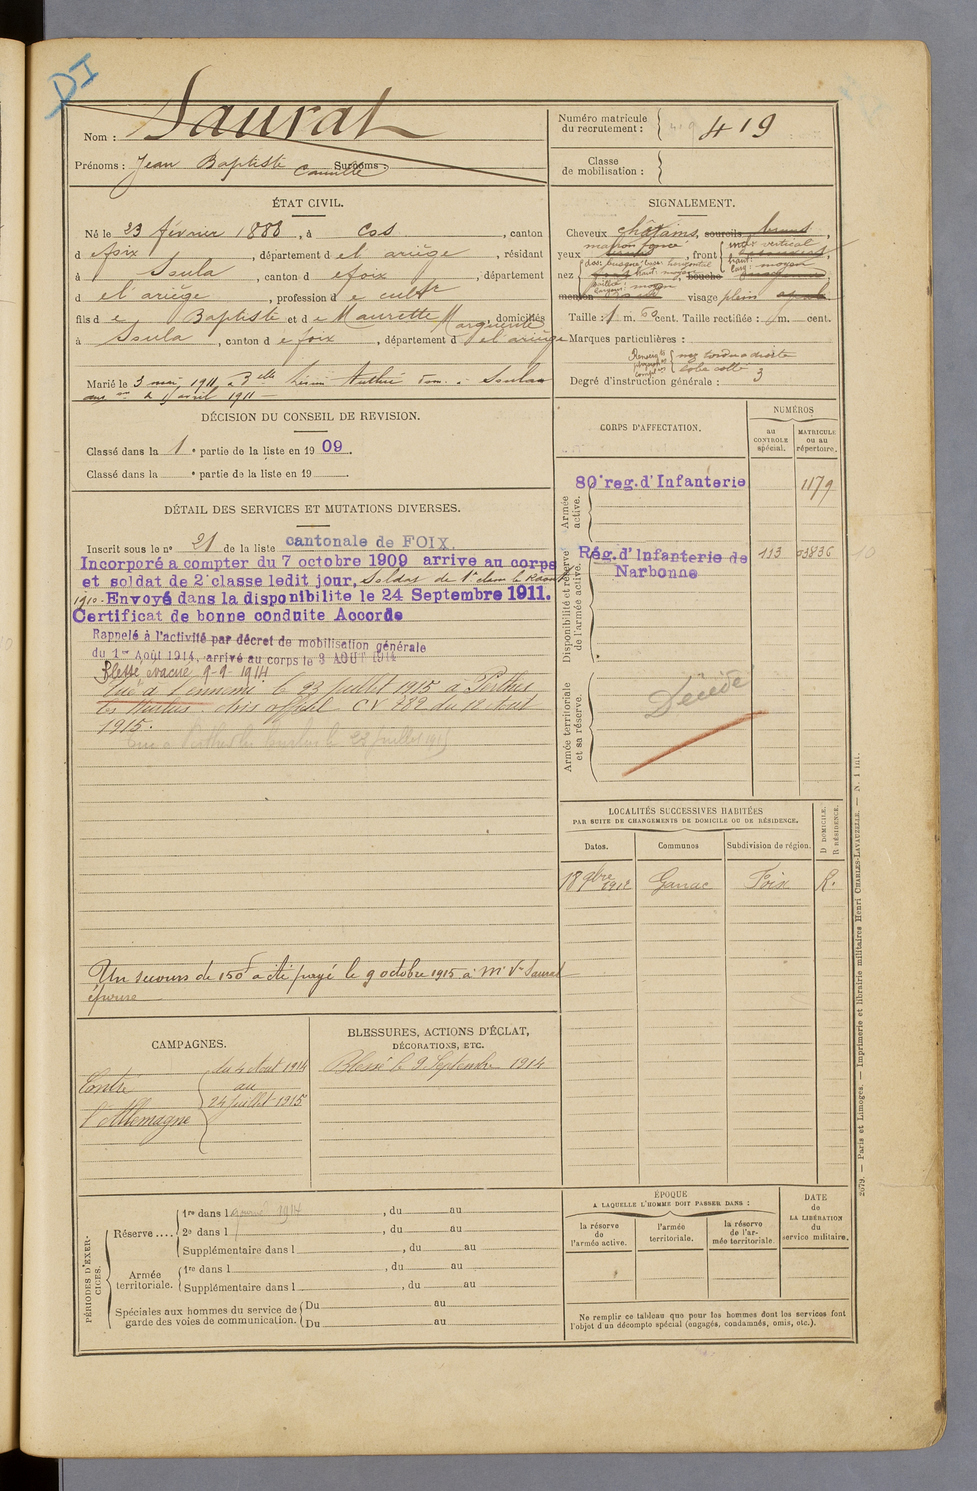 DI
Nom : Saurat
Prénoms : Jean Baptiste Camille Surnoms :
Numéro matricule du recrutement : 419
Classe de mobilisation :
ÉTAT CIVIL.
Né le 23 février 1888, à Cos, canton
d e foix, département d e l'ariège, résidant
à Soula, canton d e foix, département
d e l'ariège, profession d e cultr
fils d e Baptiste et d e Maurette Marguerite, domiciliés
à Soula, canton d e foix, département d e l'ariège
Marié le 3 mai 1911, à Delle
avril 1911
SIGNALEMENT.
Cheveux châtains, sourcils bruns,
yeux marron foncé, front inter vertical
haut : moyen
larg : moyen
nez dos : busqué base : horizontal
haut : moy
saillie :
largeur : moyen
bouche
menton visage plein ovale
Taille : 1 m. 62 cent. Taille rectifiée : m. cent.
Marques particulières :
nez tordu à droite
lobe collé
Degré d'instruction générale : 3
DÉCISION DU CONSEIL DE REVISION.
Classé dans la 1e partie de la liste en 1909.
Classé dans la e partie de la liste en 19
DÉTAIL DES SERVICES ET MUTATIONS DIVERSES.
Inscrit sous le no 21 de la liste cantonale de FOIX.
Incorporé a compter du 7 octobre 1909 arrive au corps
et soldat de 2e classe ledit jour, Soldat de 1e classe le
1910. Envoyé dans la disponibilite le 24 Septembre 1911.
Certificat de bonne conduite Accorde
Rappelé à l'activité par décret de mobilisation générale
du 1er Août 1914, arrivé au corps le 3 AOUT 1914
Blessé évacué 9-9-1914
Tué à l'ennemi le 23 juillet 1915 à Perthes
les Hurlus. avis officiel CV 782 du 12 Aout
1915.
Tué à Perthes les Hurlus le 23 juillet 1915
Un secours de 150f a été payé le 9 octobre 1915 à Me Ve Saurat
épouse
CORPS D'AFFECTATION.
NUMÉROS
au CONTROLE spécial.
MATRICULE ou au répertoire.
Armée active.
80e reg. d'Infanterie
1179
Disponibilité et réserve de l'armée active.
Rég. d'Infanterie de
Narbonne
113
03836
Armée territoriale et sa réserve.
Décédé
LOCALITÉS SUCCESSIVES HABITÉES
PAR SUITE DE CHANGEMENTS DE DOMICILE OU DE RÉSIDENCE.
Dates.
Communes
Subdivision de région.
D DOMICILE.
R RÉSIDENCE.
18 9bre 1912
Ganac
Foix
R.
CAMPAGNES.
Contre
l'Allemagne
du 4 Aout 1914
au
24 Juillet 1915
BLESSURES, ACTIONS D'ÉCLAT,
DÉCORATIONS, ETC.
Blessé le 9 Septembre 1914
PÉRIODES D'EXERCICES.
Réserve ....
1re dans l 1914, du au
2e dans l , du au
Supplémentaire dans l , du au
Armée territoriale.
1re dans l , du au
Supplémentaire dans l , du au
Spéciales aux hommes du service de garde des voies de communication.
Du au
Du au
ÉPOQUE
A LAQUELLE L'HOMME DOIT PASSER DANS :
la réserve de l'armée active.
l'armée territoriale.
la réserve de l'armée territoriale.
DATE de LA LIBÉRATION du service militaire.
Ne remplir ce tableau que pour les hommes dont les services font
l'objet d'un décompte spécial (engagés, condamnés, omis, etc.).
2079. — Paris et Limoges. — Imprimerie et librairie militaires Henri CHARLES-LAVAUZELLE. — N. 1 int.